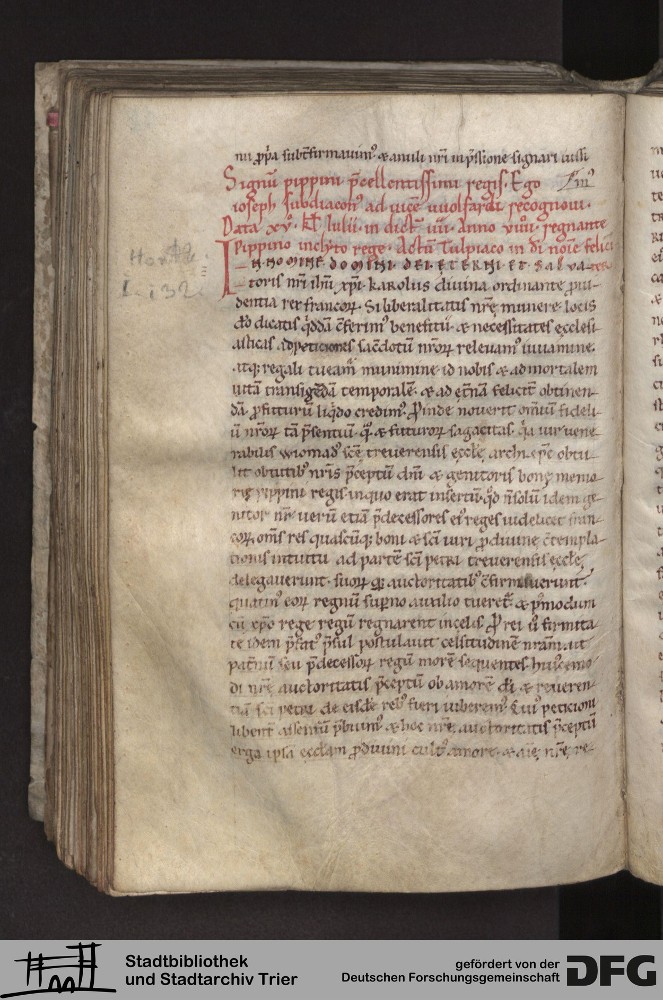 nu ꝓp̄a subt̄firmauim᷒ & anuli nr̄i inp̄ssione signari iussi
Signū pippini p̄cellentissimi regis. Ego
ioseph subdiacon᷒ ad uicē uuolfardi recognoui.
Data xv. kl̄ Iulii. in dict̄ viii. Anno viiii. regnante
Pippino inclyto rege. Actū Tulpiaco in dī noīe felicit̄
IN NOMINE DOMINI DEI ETERNI ET SALVA
toris nr̄i ihū xp̄i. karolus diuina ordinante ꝓui-
dentia rex francoꝝ. Si liberalitatis nrē munere locis
dō dicatis q̄ddā c̄ferim᷒ benefitiū. & necessitates ecclesi
asticas ad peticiones sac̄dotū nr̄oꝝ releuam᷒ iuuamine.
atq; regali tueam᷒ munimine. id nobis & ad mortalem
uitā transigēdā temporalē. & ad et̄nā felicit̄ obtinen-
dā ꝓfitturū liq̄do credim᷒. Proinde nouerit omīuī fideli-
ū nr̄oꝝ tā p̄sentiū q̄ & futuroꝝ sagacitas. q̄a uir uene
rabilis wiomad᷒ scē treuerensis eccłe archiep̄c obtu-
lit obtutib᷒ nr̄is p̄ceptū dn̄i & genitoris bonę memo
rię pippini regis. in quo erat insertū. qd̄ n̄ solū idem ge-
nitor nr̄ uerū etiā p̄decessores ei᷒ reges uidelicet fran-
coꝝ. om̄s res quascūq; boni & sc̄i uiri ꝓ diuine c̄templa-
tionis intuitu ad partē sc̄i petri treuerensis eccłe
delegauerunt. suoꝝ q; auctoritatib᷒ c̄firmauerunt.
quatin᷒ eoꝝ regnū sup̄no auxilio tueret᷒. & p᷒modum
cū xp̄o rege regū regnarent in celis. Pro rei ū firmita
te idem p̄fat᷒ p̄sul postulauit celsitudinē nr̄am. ut
pat̄nū seu p̄decessoꝝ regū morē sequentes. hui᷒cemo
di nrē auctoritatis p̄ceptū ob amorē dī & reueren-
tiā sc̄i petri de eisdē reb᷒ fieri iuberem᷒. Cui᷒ peticioni
libent̄ assensū p̄buim᷒. & hoc nrē auctoritatis p̄ceptū
erga ipsa eccłam ꝓ diuini cult᷒ amore. & aīe nrē re-
Stadtbibliothek
und Stadtarchiv Trier
gefördert von der
Deutschen Forschungsgemeinschaft
DFG